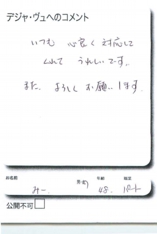 デジャ・ヴュへのコメント
いつも 心良く対応して
くれて うれしいです。
また、よろしくお願いします。
お名前
年齢
職業
みー
48
パート
公開不可□